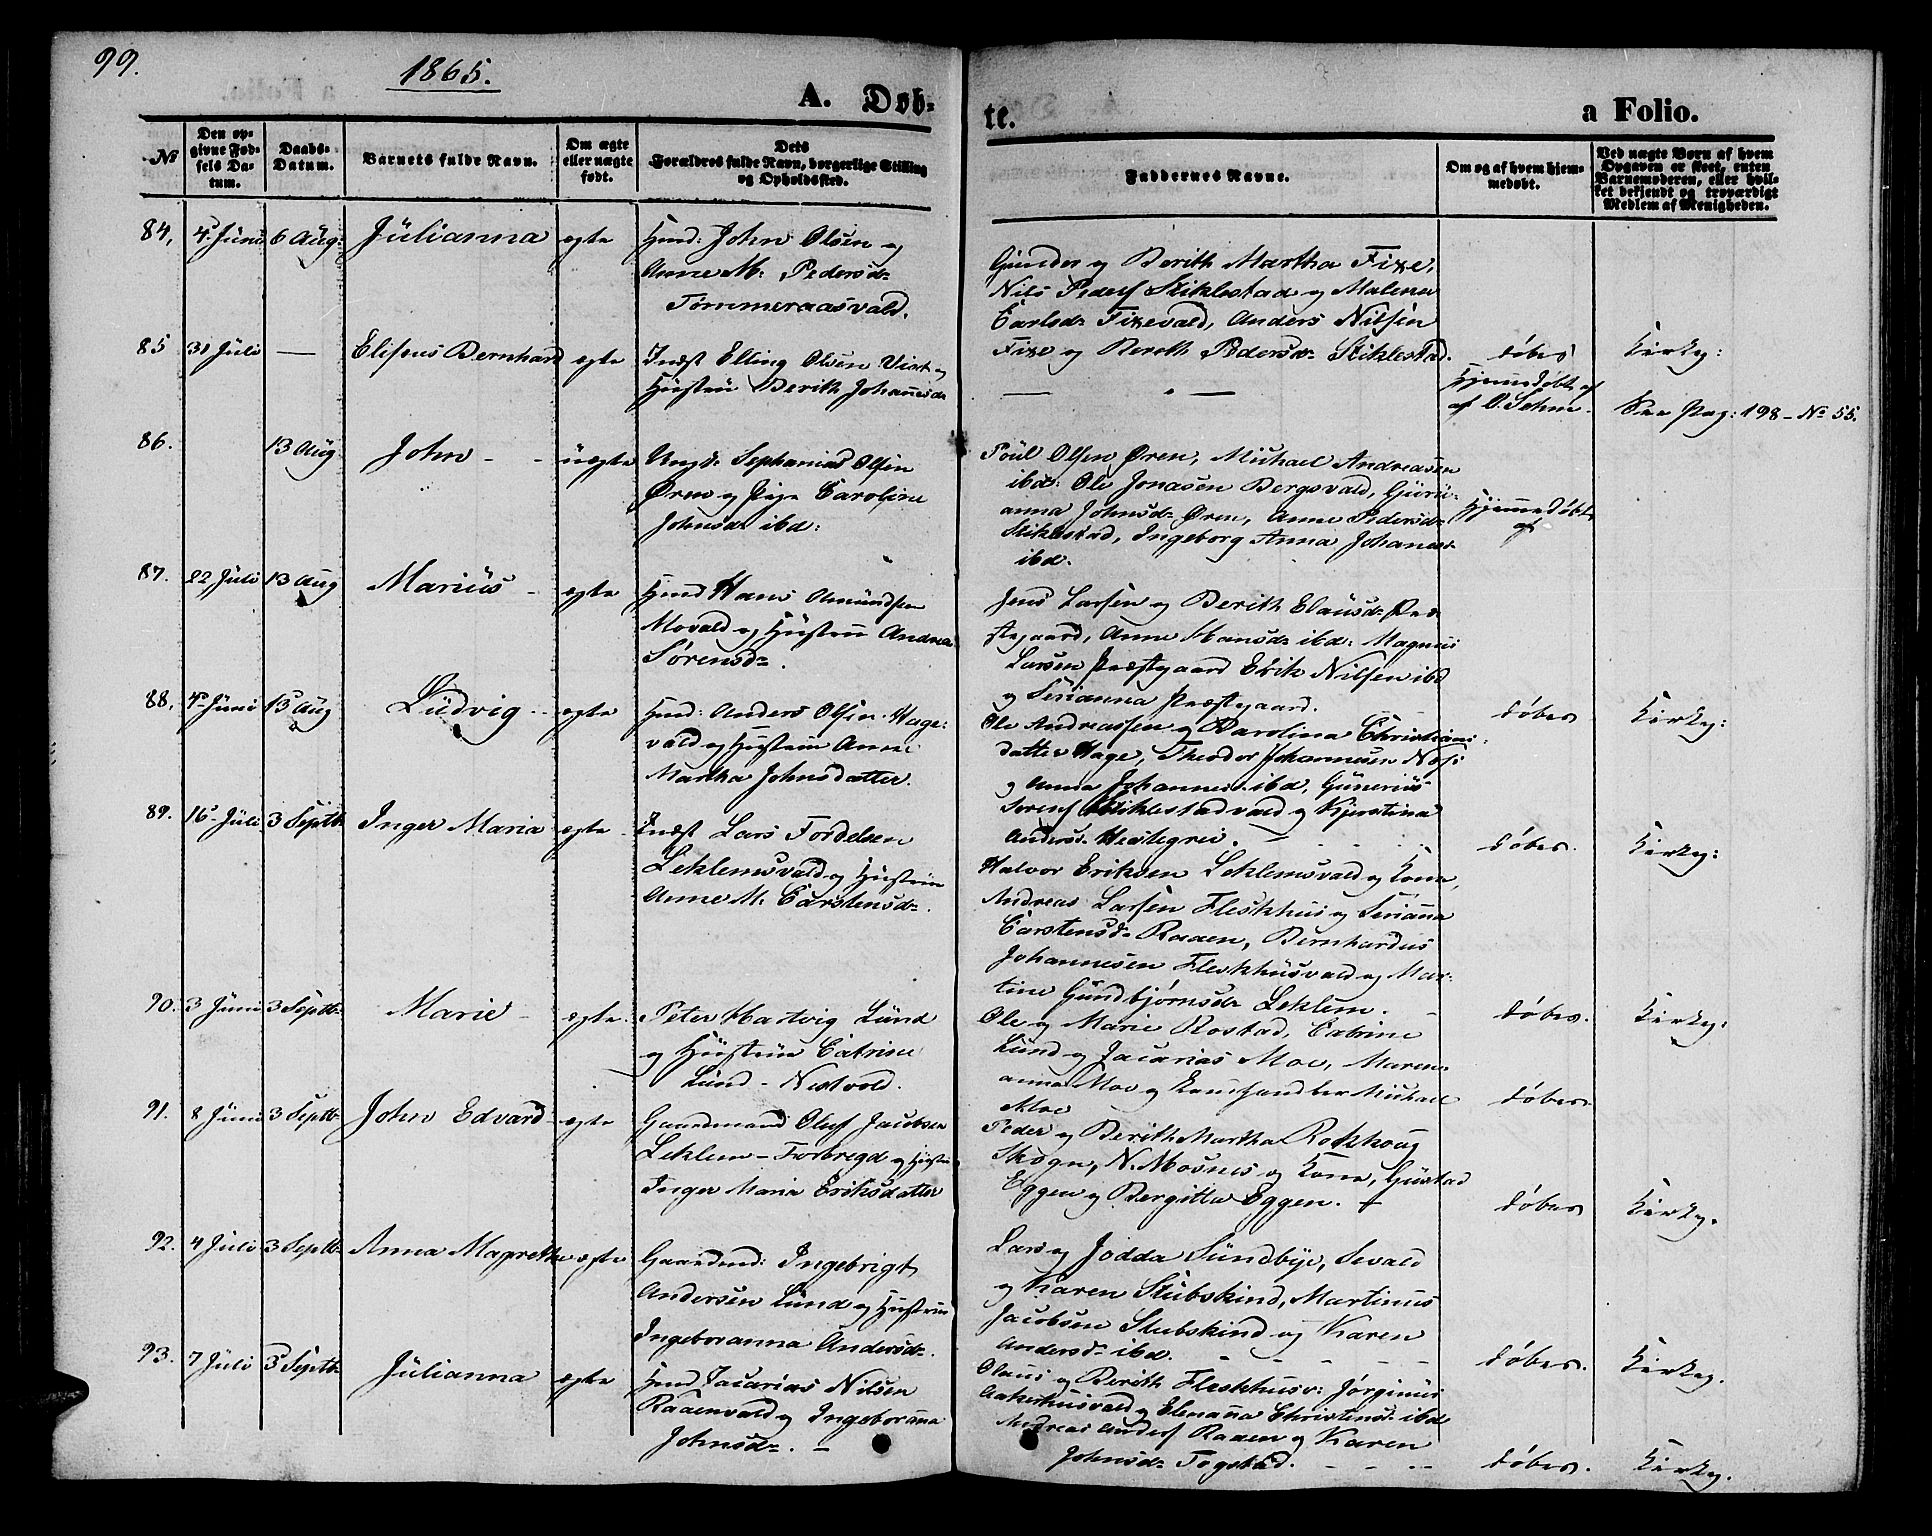 99.
1865.
A. Døb-
te.
a Folio.
№
Den op-
givne Fød-
sels Da-
tum.
Daabs-
Datum.
Barnets fulde Navn.
Om ægte
eller uægte
født.
Dets
Forældres fulde Navn, borgerlige Stilling
og Opholdssted.
Faddernes Navne.
Om og af hvem hjem-
medøbt.
Ved uægte Børn af hvem
Opgaven er skeet, enten
Barnemoderen, eller hvil-
ket bekjendt og troværdigt
Medlem af Menigheden.
84, 4 Juni 6 Aug. Julianna ægte Huusm: John Olsen og
Anne M: Pedersd.
Tømmeraasvald.
Gunder og Berith Martha Fixe,
Nils Peders Stiklestad og Malena
Carlsd. Fixevald, Anders Nilsen
Fixe og Bereth Pedersd. Stiklestad.
døbes Kirkeg:
85 31 Juli — Eliseus Bernhard ægte Indst Elling Olsen Vist og
Hustru Berith Johannesd.
— " —
Hjemmedøbt af
af O. Sehm. See Pag: 198 - No 55.
86. 13 Aug John - - uægte Ungk. Sephanias Olsen
Øren og Pige Caroline
Johnsd. ibd:
Poul Olsen Øren, Michael Andreasen
ibd: Ole Jonasen Bergsvald, Guru-
anna Johnsd. Øren, Anne Pedersd.
Stiklestad, Ingeborg Anna Johannesd.
ibd.
Hjemmedøbt
af
87. 22 Juli 13 Aug Marius - ægte Huusm Hans Amundsen
Movald og Hustru Andrea
Sørensd.
Jens Larsen og Berith Clausd. Præ-
stegaard, Anne Hansd. ibd: Magnus
Larsen Præstegaard Erik Nilsen ibd
og Serianna Præstegaard.
døbes Kirkeg:
88, 4 Juni 13 Aug Ludvig - ægte Huusm: Anders Olsen Hage-
vald og Hustru Anne
Martha Johnsdatter.
Ole Andreassen og Karolina Christians-
datter Hage, Theodor Johannesen
og Anna Johannesd. ibd, Gunerius
Sørens Stiklestadvald og Kjerstina
Andersd. Hestegrei.
døbes. Kirkeg:
89. 16 Juli 3 Septb. Inger Maria ægte Indst Lars Tordelsen
Leklemsvald og Hustru
Anne M: Carstensd.
Halvor Eriksen Leklemsvald og Kone,
Andreas Larsen Fleskhus og Serianna
Carstensd. Raaen, Bernhardus
Johannesen Fleskhusvald og Mar-
tine Gundbjørnsd. Leklem.
døbes. Kirkeg:
90. 3 Juni 3 Septb. Marie - ægte. Peter Hartvig Lund
og Hustru Catrine
Lund - Nestvold.
Ole og Marie Rostad, Catrine
Lund og Zacarias Moe, Maren-
anna Moe og Michael
Moe
døbes.
91. 8 Juni 3 Septb. John Edvard ægte Gaardmand Oluf Jacobsen
Leklem - Forbregd og Hustru
Inger Maria Eriksdatter
Peder og Berith Martha Rokhoug
Skogn, N. Mosnes og Kone, Gustad
Eggen og Bergitta Eggen.
døbes Kirkeg.
92. 4 Juli 3 Septb. Anna Magrethe ægte Gaardmd: Ingebrigt
Andersen Lund og Hustru
Ingeboranna Andersd.
Lars og Jodda Sundbye, Sevald
og Karen Stubskind, Martinus
Jacobsen Stubskind og Karen
Andersd. ibd.
døbes. Kirkeg.
93. 7 Juli 3 Septb. Julianna ægte Huusm Zacarias Nilsen
Raaenvald og Ingeboranna
Johnsd. -
Olaus og Berith Fleskhusv: Jørginus
Aakerhusvald og Elenanna Christensd. ibd
Andreas Anders Raaen og Karen
Johnsd. Fogstad.
døbes. Kirkeg.